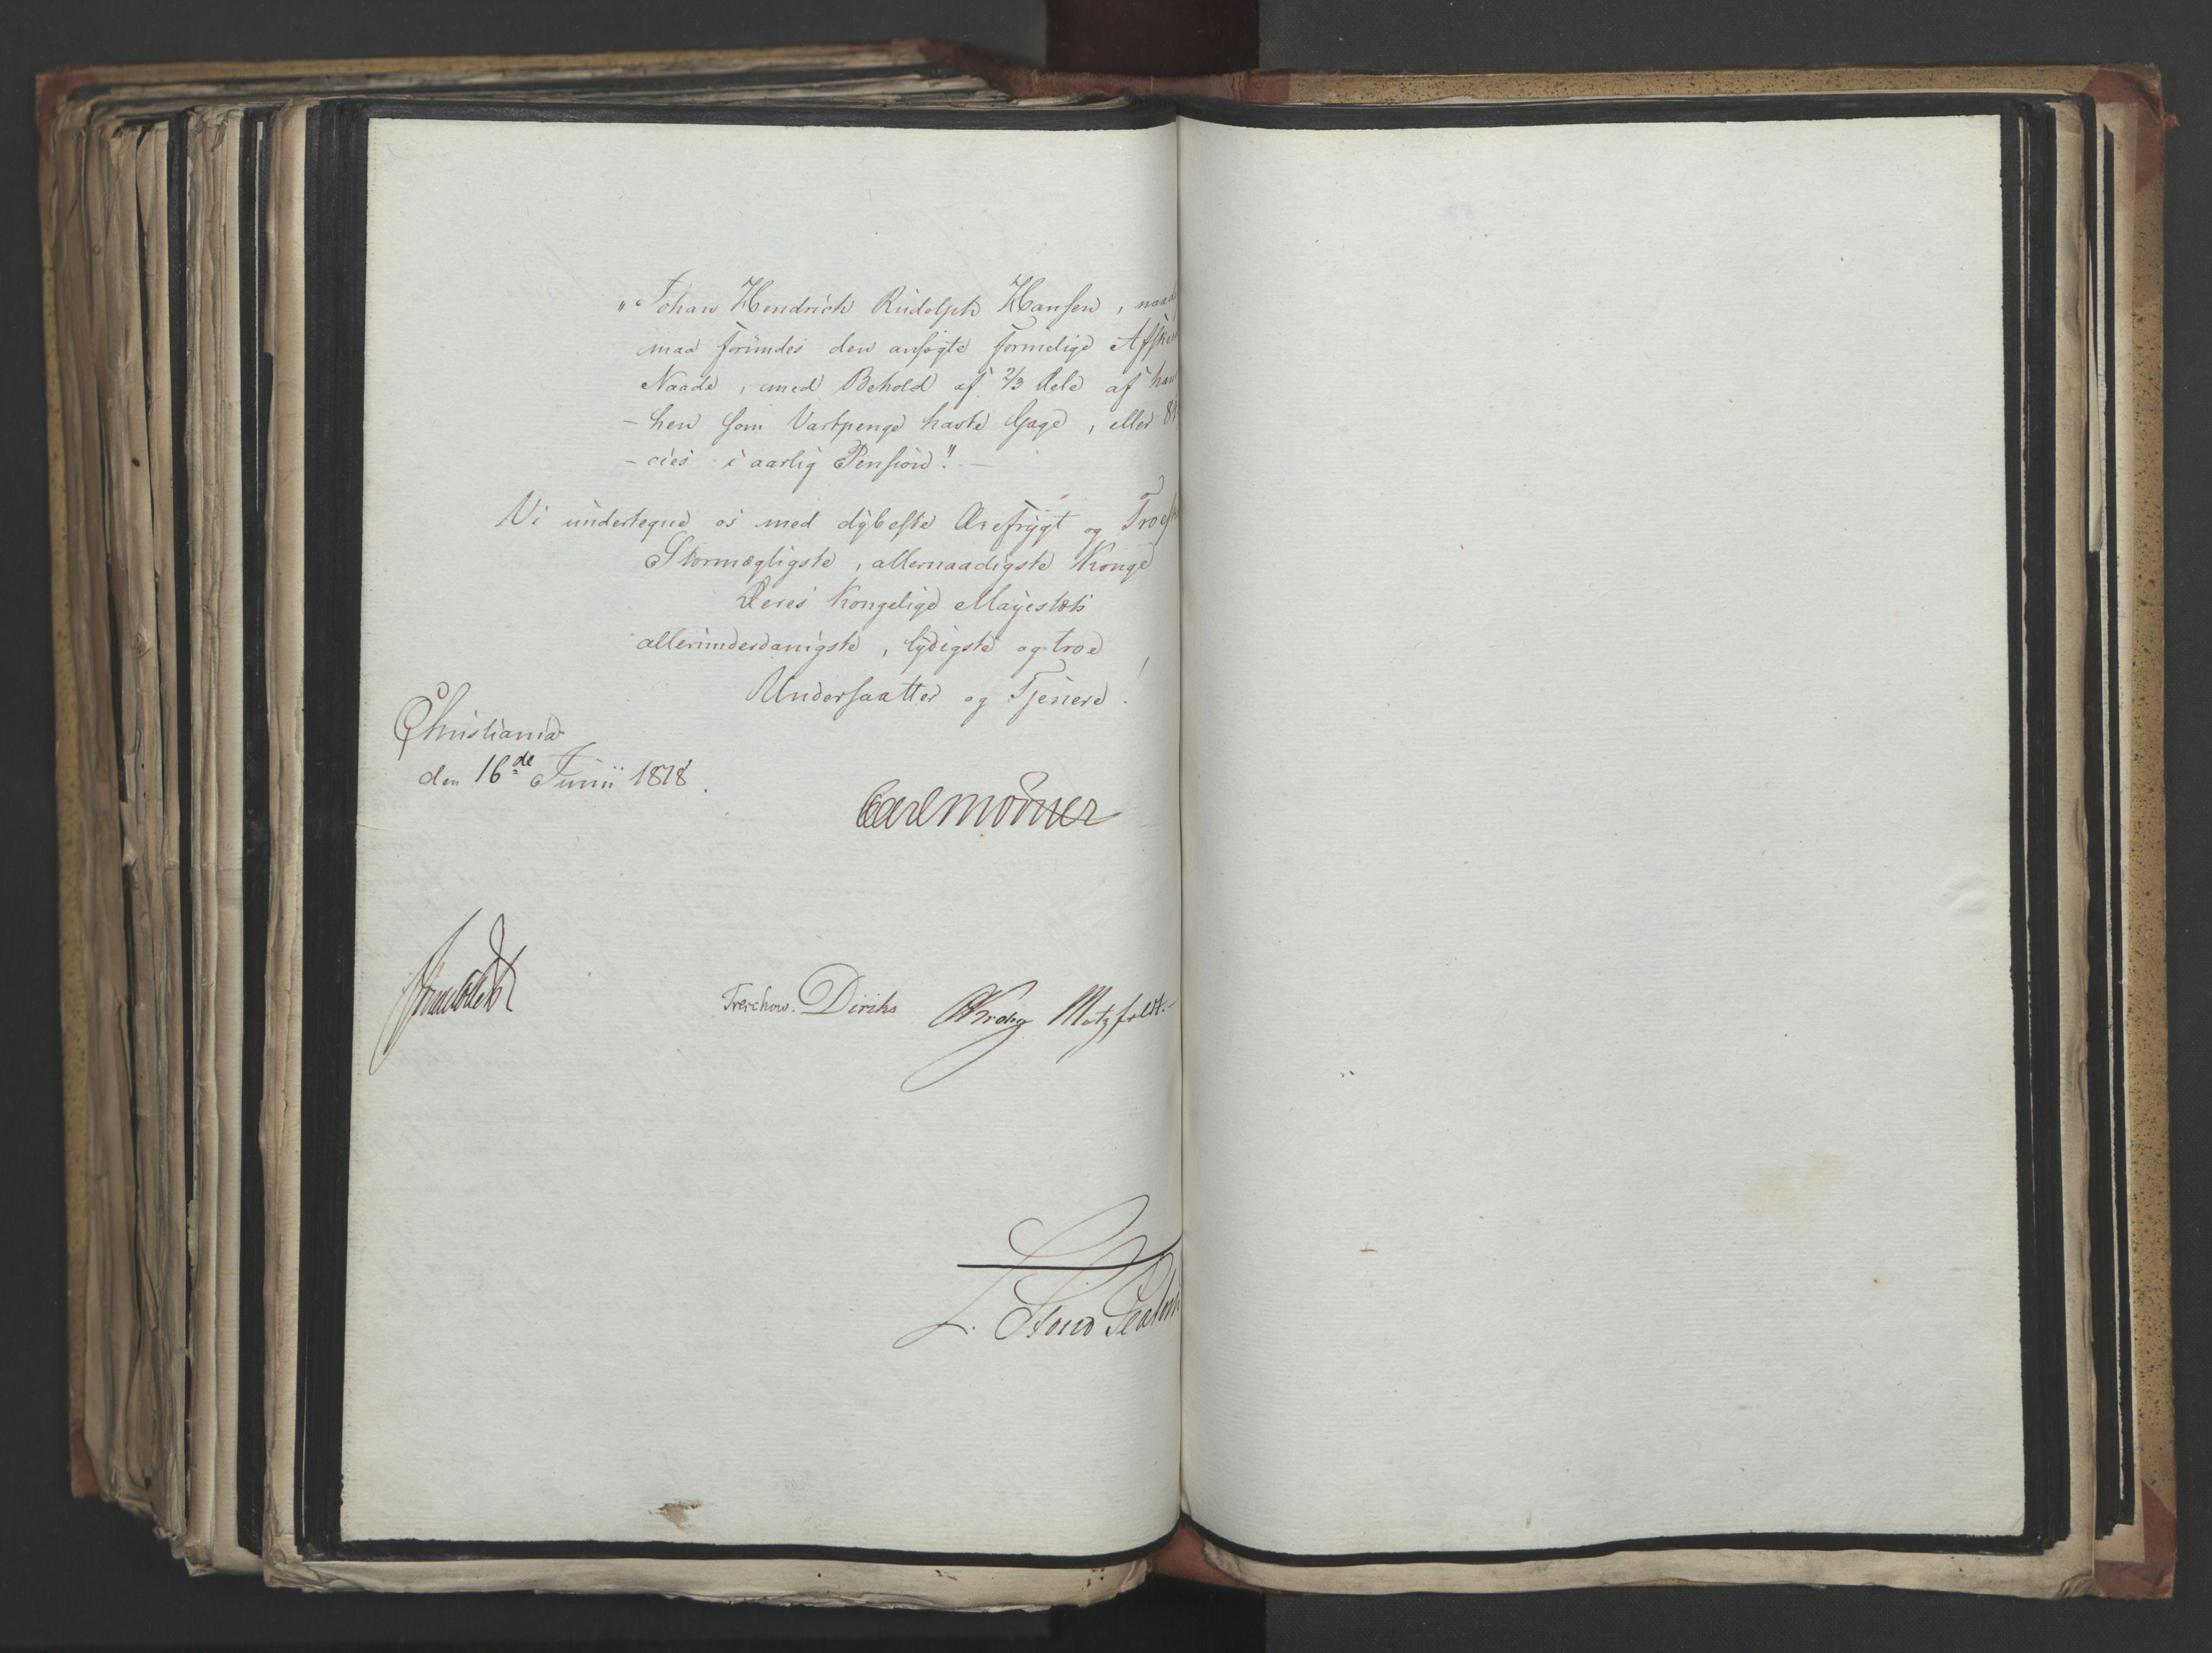 "Johan Hendrich Rudolph Hansen, naad
maa forundes den ansøgte formelige Afske
Naade, med Behold af 2/3 Dele af han
- hen som Vartpenge havte Gage, eller 8
- cies i aarlig Pension". -
Vi undertegne os med dybeste Ærefrygt og Troes
Stormægtigste, allernaadigste Konge
Deres Kongelige Mayestæts
allerunderdanigste, lydigste og troe
Undersaatter og Tjenere!
Christiania
den 16de Junii 1818.
Carl Mörner
Treschow. Diriks Krohg Motzfeldt.
L.